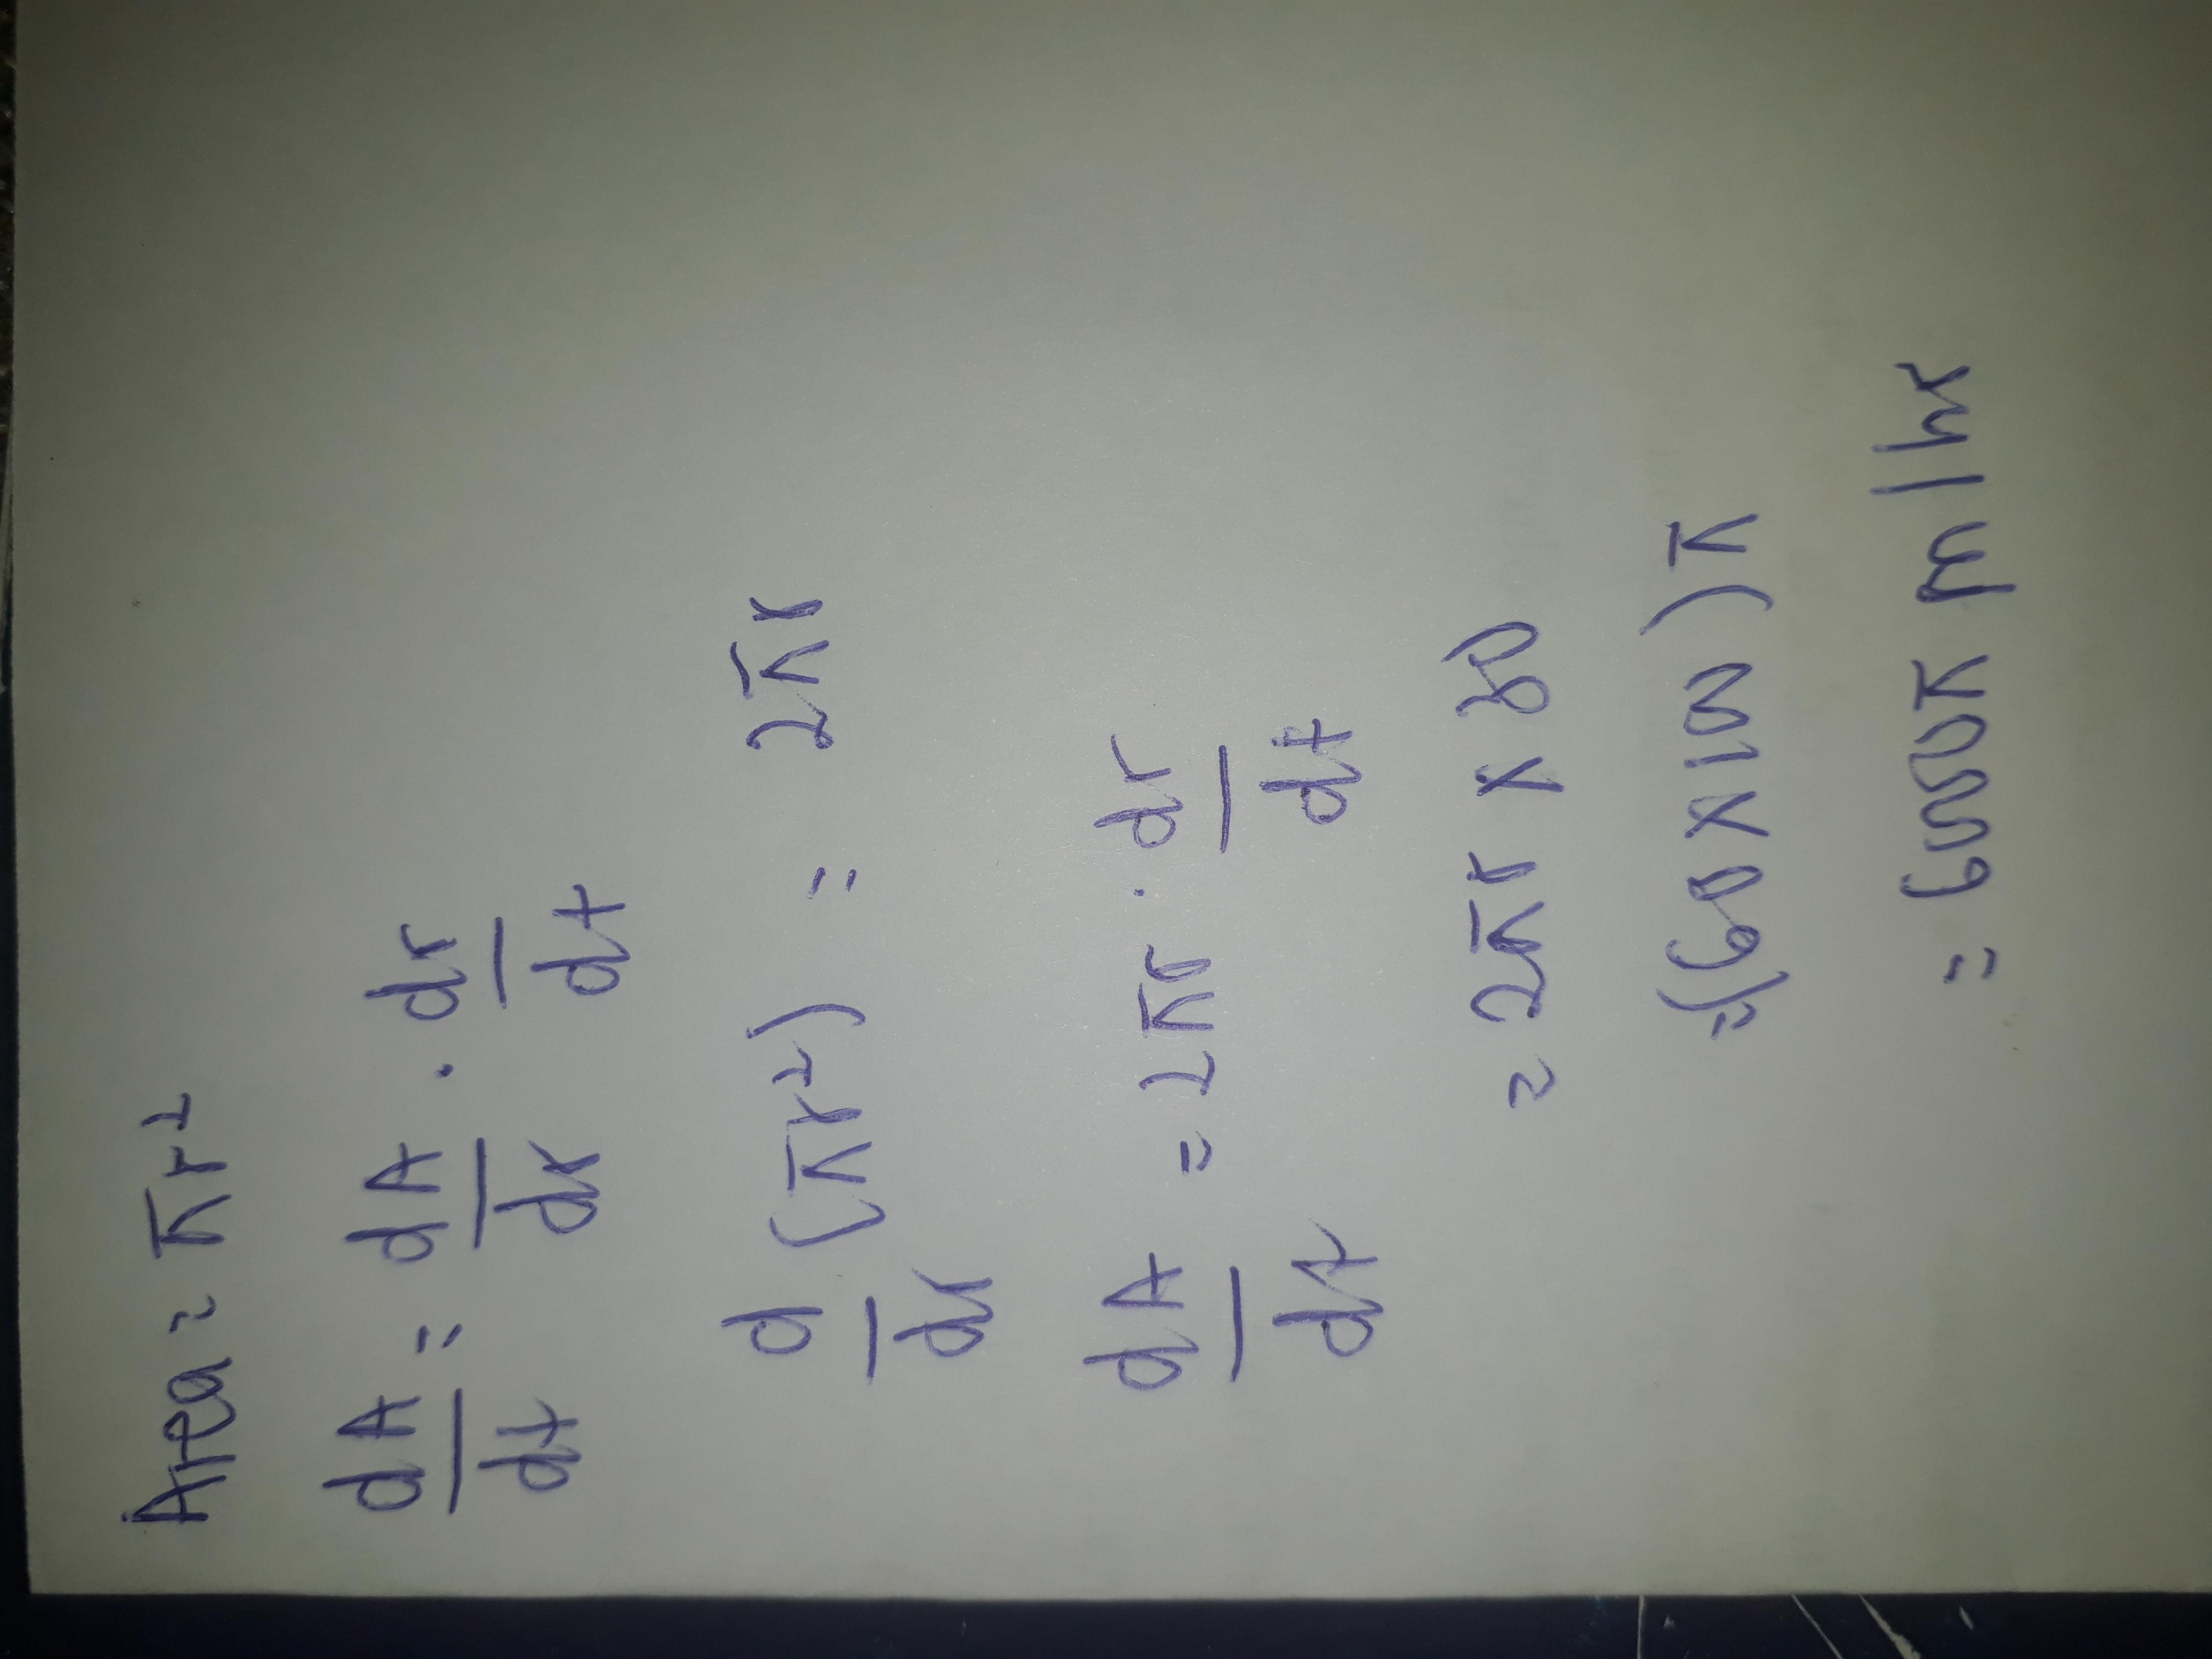 Area = πr²
dA/dt = dA/dr · dr/dt
d/dr (πr²) = 2πr
dA/dt = 2πr · dr/dt
= 2πr × 30
= (60 × 100)π
= 6000π m/hr